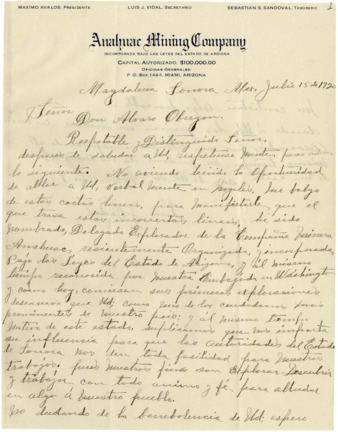 MAXIMO AVALOS, PRESIDENTE LUIS J. VIDAL, SECRETARIO SEBASTIAN S. SANDOVAL, TESORERO
Anahuac Mining Company
INCORPORADA BAJO LAS LEYES DEL ESTADO DE ARIZONA
CAPITAL AUTORIZADO, $100,000.00
OFICINAS GENERALES:
P. O. BOX 1464, MIAMI, ARIZONA
Magdalena Sonora Mex. Julio 15 de 1920
Señor
Don Alvaro Obregon.
Respetable y Distinguido Señor,
despues de saludar a Ud. respetuosamente, paso a
lo siguiente. No aviendo tenido la Oportunidad
de Ablar a Ud. verbalmente en Nogales, me balgo
de estas cortas lineas, para manifestarle, que el
que traza estas lineas, he sido
Nombrado, Delegado Explorador de la Compañia Minera
Anahuac, recientemente Organizada, y incorporada,
Bajo las Leyes del Estado de Arizona, y al mismo
tiempo reconocida por nuestra Embajada en Washington
y como hoy, comiensan sus primeras exploraciones
deseamos que Ud. como uno de los ciudadanos mas
prominentes de nuestro pais; y al mismo tiempo
Nativo de este estado. Suplicamos que nos imparta
su influencia para que las autoridades del Estado
de Sonora nos den toda facilidad para nuestros
trabajos. pues nuestros fines son Explorar, Descubrir
y trabajar con todo animo y fé para alludar
en algo á nuestro pueblo.
No dudando de la benebolencia de Ud. espero